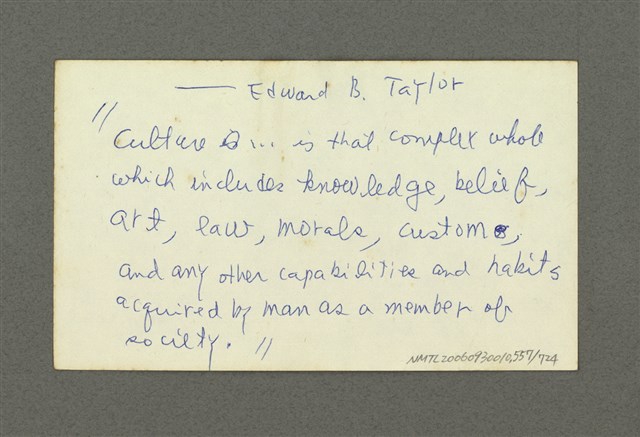 — Edward B. Taylor
"Culture ... is that complex whole
which includes knowledge, belief,
art, law, morals, custom,
and any other capabilities and habits
acquired by man as a member of
society. "
NMTL20060930010,557/724